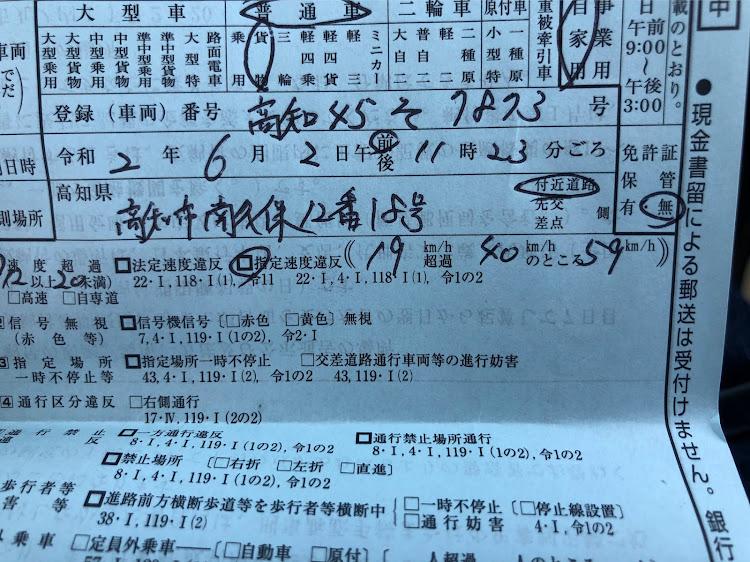 大型車 普通車 二輪車 原付車 重被牽引車 自家用 事業用
大型乗用 大型貨物 中型乗用 中型貨物 準中型乗用 準中型貨物 大型特 路面電車 乗用 貨物 三輪 軽四乗 軽四貨 ミニカー 大自二 普自二 小型特 二種原 一種原
登録(車両)番号 高知45そ7873号
日時 令和2年6月2日午前後11時23分ごろ
測場所 高知県 高知市南久保12番18号 付近道路 先交差点 側
免許証 保管 有・無
速度超過 □法定速度違反 □指定速度違反 (19km/h超過 40km/hのところ59km/h)
(12以上20未満) 22・I,118・I(1),令11 22・I,4・I,118・I(1),令1の2
□高速 □自専道
2 信号無視 □信号機信号〔□赤色 □黄色〕無視
(赤色等) 7,4・I,119・I(1の2),令2・I
3 指定場所 □指定場所一時不停止 □交差道路通行車両等の進行妨害
一時不停止等 43,4・I,119・I(2),令1の2 43,119・I(2)
4 通行区分違反 □右側通行
17・Ⅳ,119・I(2の2)
通行禁止違反 □一方通行違反 □通行禁止場所通行
8・I,4・I,119・I(1の2),令1の2 8・I,4・I,119・I(1の2),令1の2
□禁止場所〔□右折 □左折 □直進〕
8・I,4・I,119・I(1の2),令1の2
歩行者等 □進路前方横断歩道等を歩行者等横断中 □一時不停止〔□停止線設置〕
害等 38・I,119・I(2) □通行妨害 4・I,令1の2
乗車 □定員外乗車―〔□自動車 □原付〕 人超過 人のところ
載のとおり。
日 前9:00〜午後3:00
中
●現金書留による郵送は受付けません。銀行